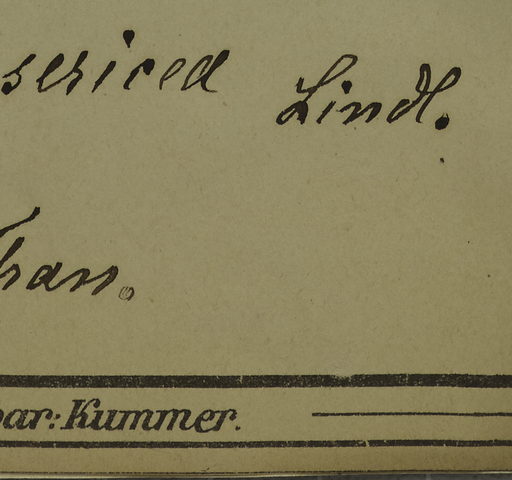 sericea Lindl.
bar: Kummer.